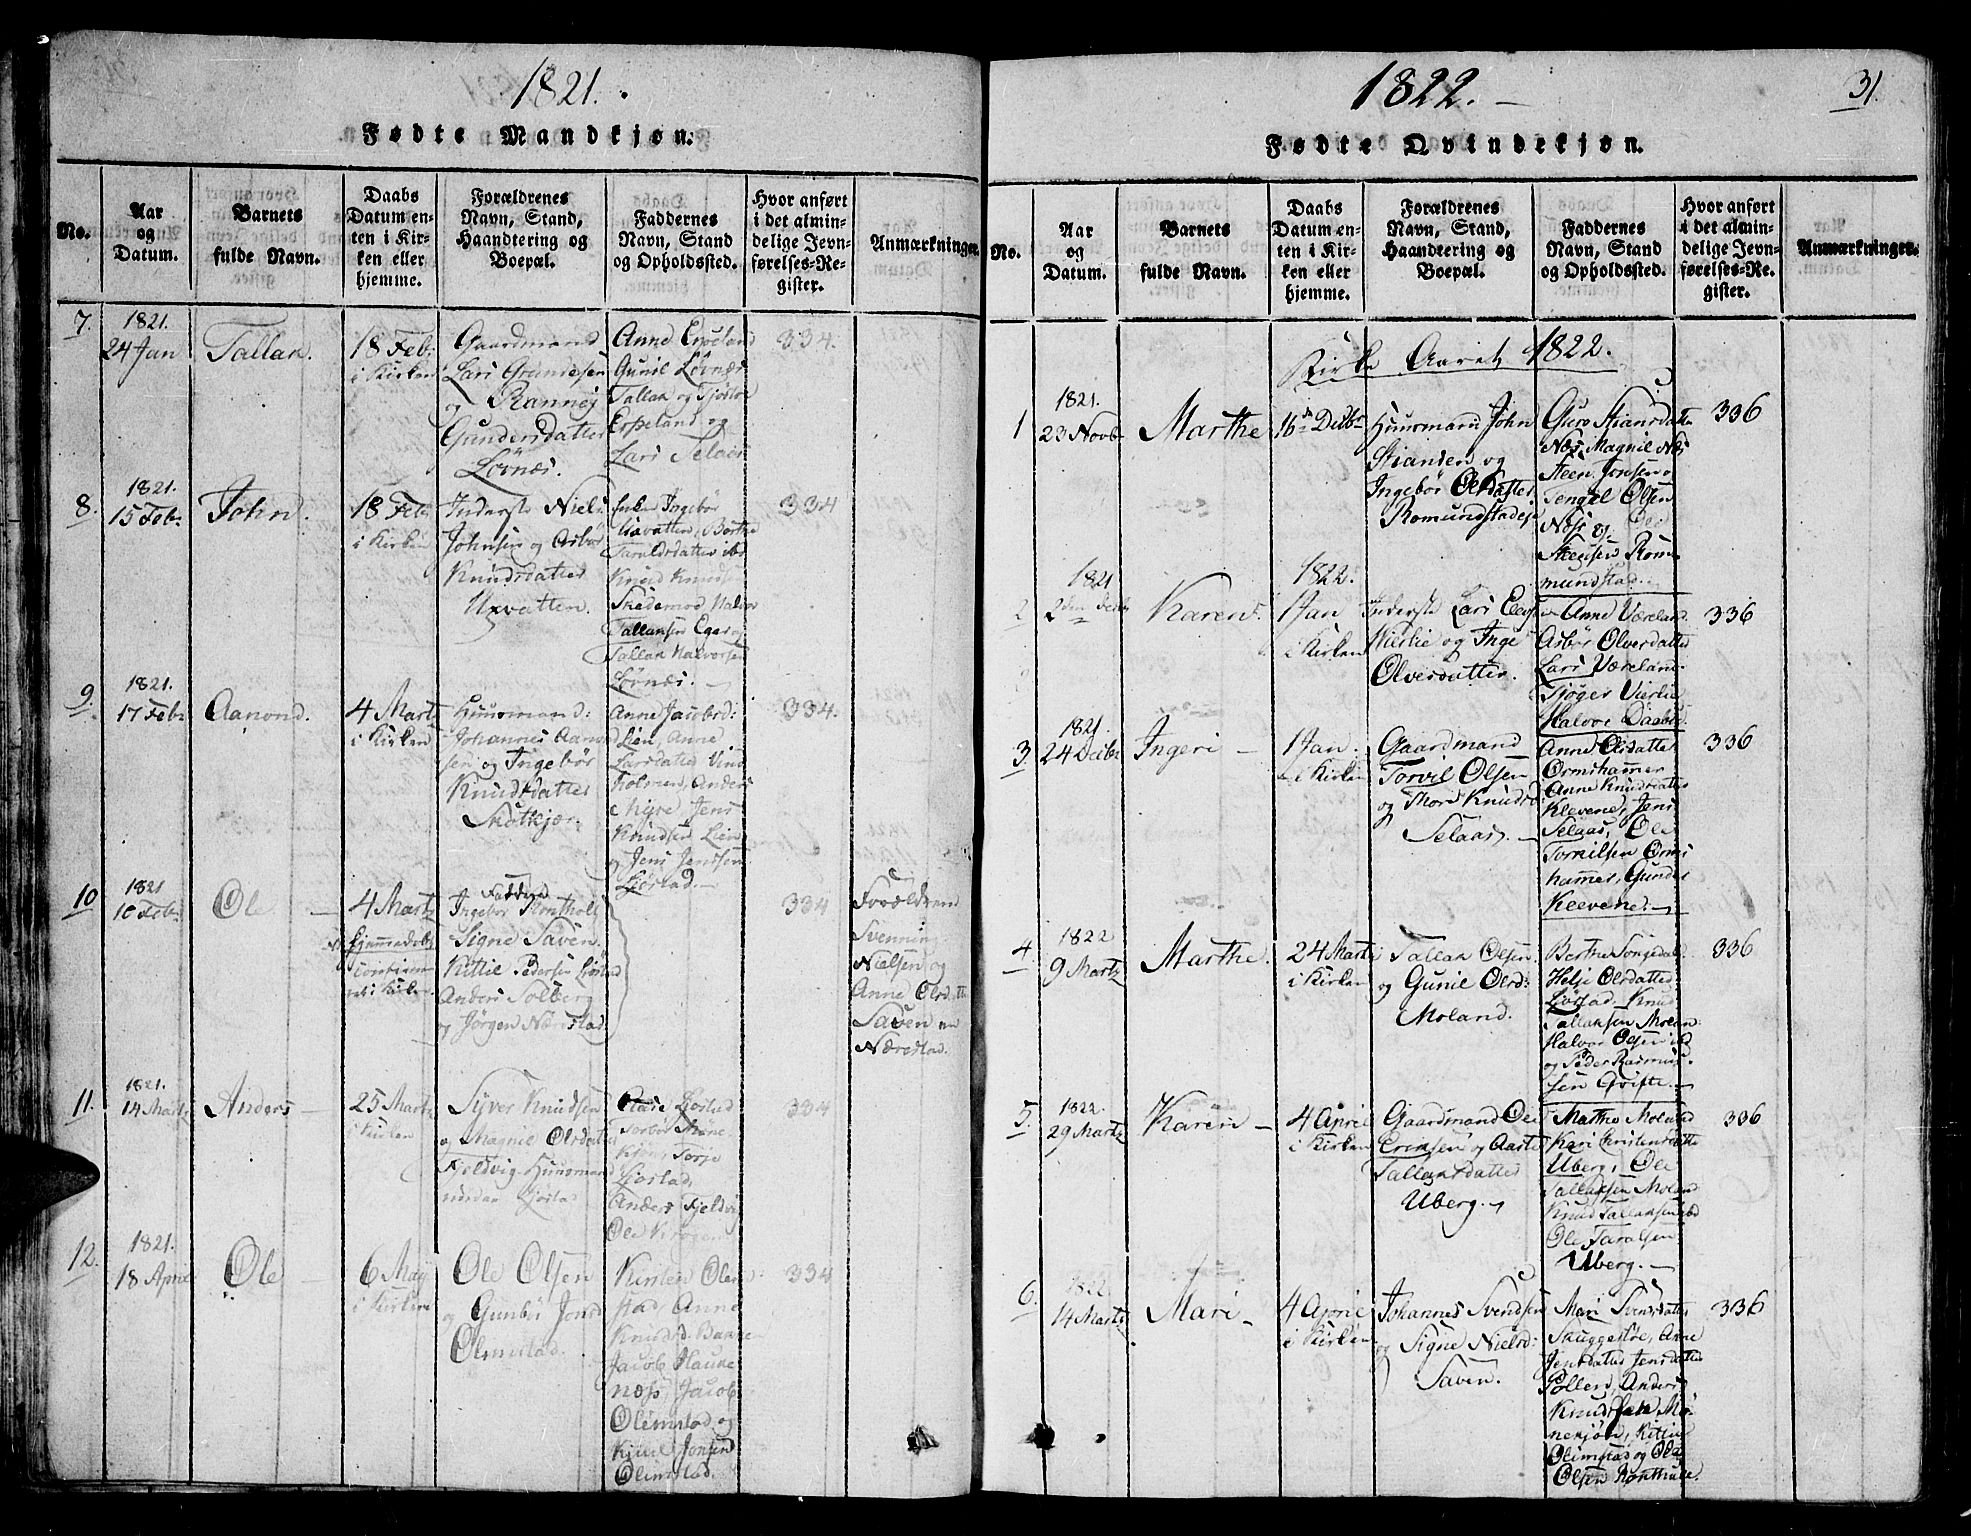 1821.
Fødte Mandkjøn.
No.
Aar
og
Datum.
Barnets
fulde Navn.
Daabs
Datum en-
ten i Kir-
ken eller
hjemme.
Forældrenes
Navn, Stand,
Haandtering og
Boepæl.
Faddernes
Navn, Stand
og Opholdssted.
Hvor anført
i det almin-
delige Jevn-
førelses-Re-
gister.
Anmærkninger.
7.
1821.
24 Jan
Tallak.
18 Feb:
i Kirken
Gaardmand
Lars Grundesen
og Rannej
Gundersdatter
Løvnæs.
Anne Espeland
Gunil Løvnæs
Tallak og
Espeland og
Lars Selaas
334.
8.
1821.
15 Febr
John.
18 Feb
i Kirken
Inderste Niels
Johnsen og Asbør
Knudsdatter
Uxvatten.
Enke Ingebør
Uxvatten, Berthe
Taraldsdatter ibd
Knud Knudsen
Skedemod, Halvor
Tallaksen Eger og
Tallak Halvorsen
Løvnæs.
334
9.
1821.
17 Febr
Aanond.
4 Martz
i Kirken
Huusmand:
Johannes Aanond
sen og Ingebør
Knudsdatter
Skotkjær.
Anne Jacobsd:
Lien, Anne
Larsdatter Vind
holmen, Anders
Myre, Jens
Knudsen Lien
og Jens Jensen
Ljøstad.
334.
10
1821
10 Febr
Ole
4 Martz
Hjemmedøbt
Faddere
Ingebør Ronthoit
Signe Saven.
Kittil Pedersen Ljøstad
Anders Solberg
og Jørgen Nærestad
334
Forældrene
Svenning
Nielsen og
Anne Olsdatter
Saven
Nærestad.
11.
1821.
14 Martz
Anders
25 Martz
i Kirken
Syver Knudsen
og Magnil Olsdatter
Fjeldvig Huusmand
Ljøstad
Aase Ljøstad
Torbør Mone
kjøn, Torje
Ljøstad,
Anders Fjeldvig
Ole Krogen
334
12.
1821.
18 April
Ole
6 May
i Kirken
Ole Olsen
og Gunbør Jonsd
Olimstad.
Kirsten Olim
stad, Anne
Knudsd. Bakke
Jacob Hauke
næss, Jacob
Olimstad og
Kjul Jonsen
Olimstad.
334
1822.
31.
Fødte Qvindekjøn.
No.
Aar
og
Datum.
Barnets
fulde Navn.
Daabs
Datum en-
ten i Kir-
ken eller
hjemme.
Forældrenes
Navn, Stand,
Haandtering og
Boepæl.
Faddernes
Navn, Stand
og Opholdssted.
Hvor anført
i det almin-
delige Jevn-
førelses-Re.
gister.
Anmærkninger.
Kirke Aaret 1822.
1
1821.
23 Novb
Marthe
16 Decbr
Huusmand John
Stiansen og
Ingebør Olsdatter
Romundstad
Guro Stiansdatter
Næs, Magnil Næs
Steen Jonsen
Tengel Olsen
Næs og Ole
Steensen Rom
mundstad.
336
2
1821
2den Decbr
Karen.
1822.
1 Jan
i Kirken
Inderste Lars Elefs
Vierlie og Inge
Olversdatter.
Anne Væreland
Asbør Olversdatter
Lars Væreland
Tjøger Vierlie
Halvor Daabus
336
3.
1821.
24 Decbr
Ingeri
1 Jan.
i Kirken
Gaardmand
Torvil Olsen
og Thore Knudsd
Selaas.
Anne Olsdatter
Ormshammer
Anne Knudsdatter
Klevene, Jens
Selaas, Ole
Torkilsen Orms
hammer, Gunder
Kleevene.
336
4.
1822
9 Martz
Marthe.
24 Martz
i Kirken
Tallak Olsen
og Gunil Olsd:
Moland.
Berthe Songedal
Helje Olsdatter
Ljøstad. Knud
Tallaksen Moland
Halvor Olsen ibd
og Peder Rasmus
sen Gvifte.
336
5.
1822.
29 Martz
Karen
4 April
i Kirken
Gaardmand Ole
Eriksen og Aaste
Tallaksdatter
Uberg.
Marthe Moland
Kari Christensdatter
Uberg, Ole
Tallaksen Moland
Knud Tallaksen ibd
Ole Taralsen
Uberg.
336
6.
1822.
14 Martz
Mari
4 April
i Kirken
Johannes Svendsen
og Signe Nielsd:
Saven.
Mari Svendsdatter
Skuggestøe, Anne
Jensdatter Jensdatter
Pollen, Anders
Knudsen Mo-
nekjøn, Kittil
Olimstad og Ole
Olsen Ronthoit.
336